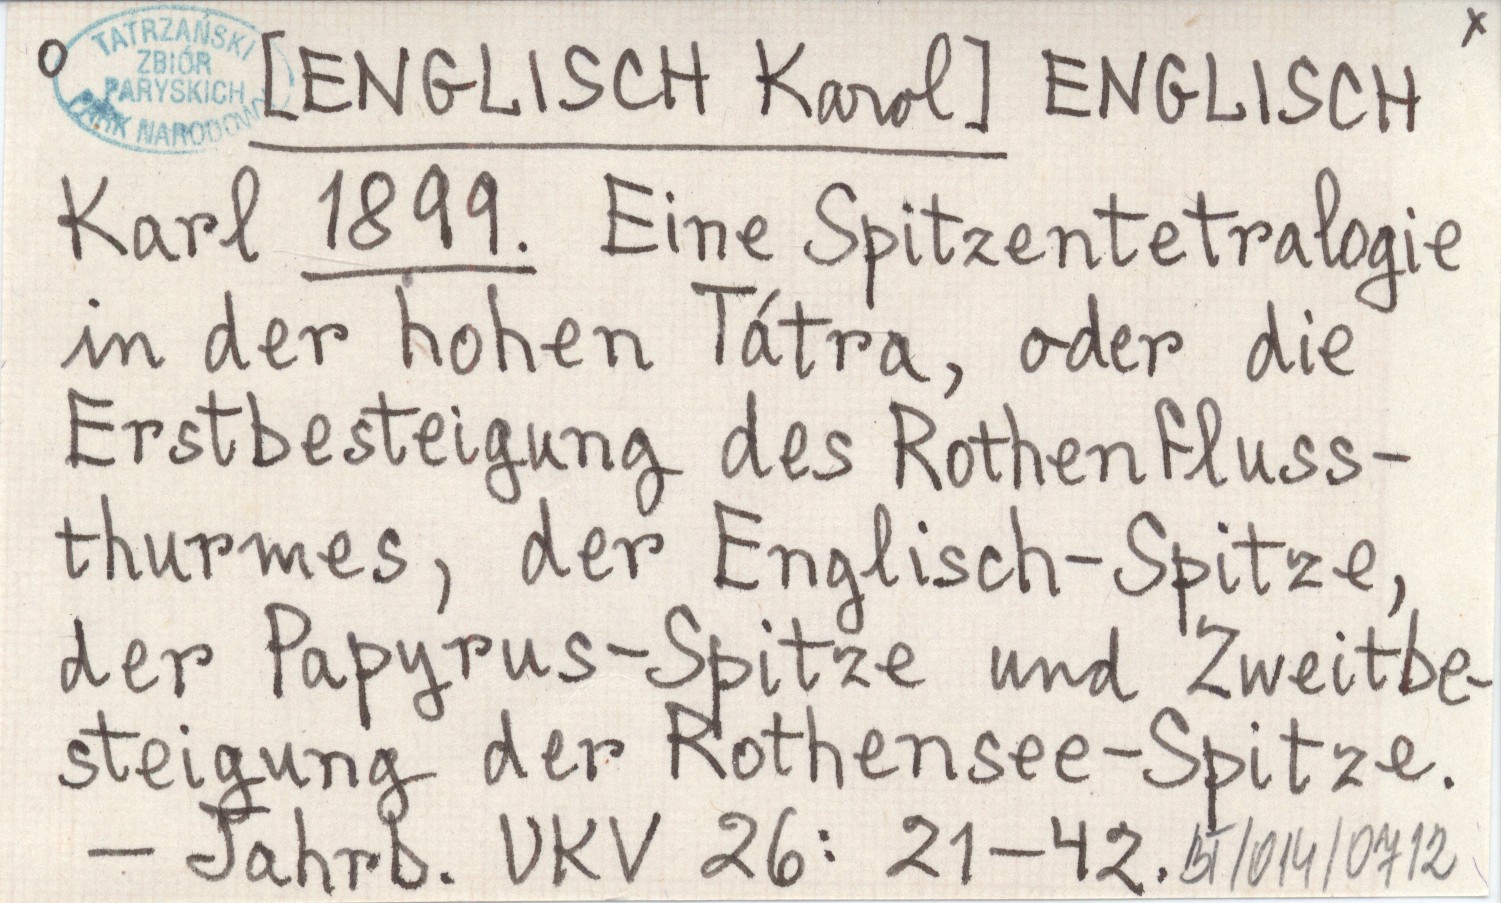 TATRZAŃSKI
ZBIÓR
PARYSKICH
PARK NARODOWY
o [ENGLISCH Karol] ENGLISCH x
Karl 1899. Eine Spitzentetralogie
in der hohen Tátra, oder die
Erstbesteigung des Rothenfluss-
thurmes, der Englisch-Spitze,
der Papyrus-Spitze und Zweitbe-
steigung der Rothensee-Spitze.
— Jahrb. VKV 26: 21—42. BT/014/0712